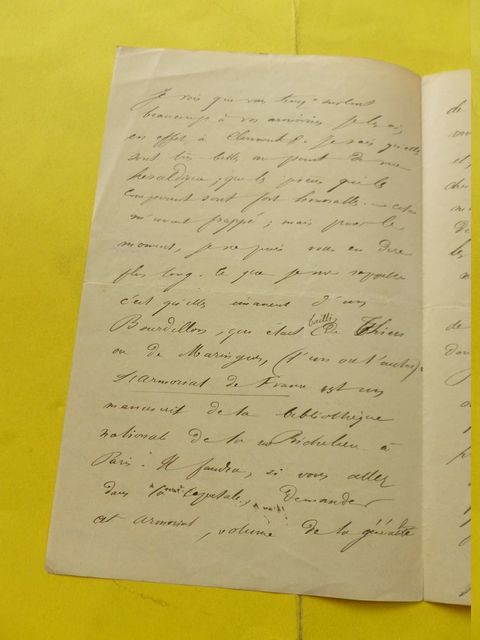 Je vois que vous tenez
beaucoup à vos armoiries. Je les ai,
en effet à Clermont F. Je sais qu'elles
sont très belles au point de vue
héraldique ; que les pièces qui les
composent sont fort honorables. - cela
m'avait frappé ; mais pour le
moment, je ne puis vous en dire
plus long. Ce que je me rappelle
c'est qu'elles viennent d'un
Bourdillon, qui était bailli de Thiers
ou de Maringues, (l'un ou l'autre).
L'armorial de France est un
manuscrit de la bibliothèque
nationale de la rue Richelieu à
Paris. Il faudra, si vous allez
dans la capitale, demander
cet armorial, volume de la généralité
de
et,
de